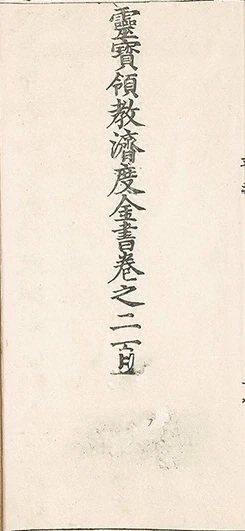 靈寶領教濟度金書卷之二百